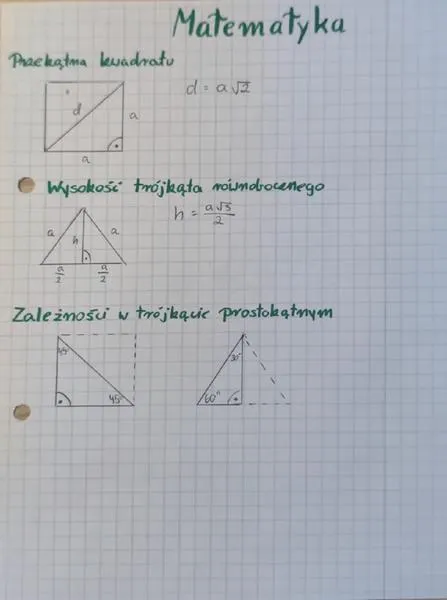 Matematyka
Przekątna kwadratu
d = a√2
d
a
a
Wysokość trójkąta równobocznego
h = a√3/2
a
a
h
a/2
a/2
Zależności w trójkącie prostokątnym
45°
45°
30°
60°